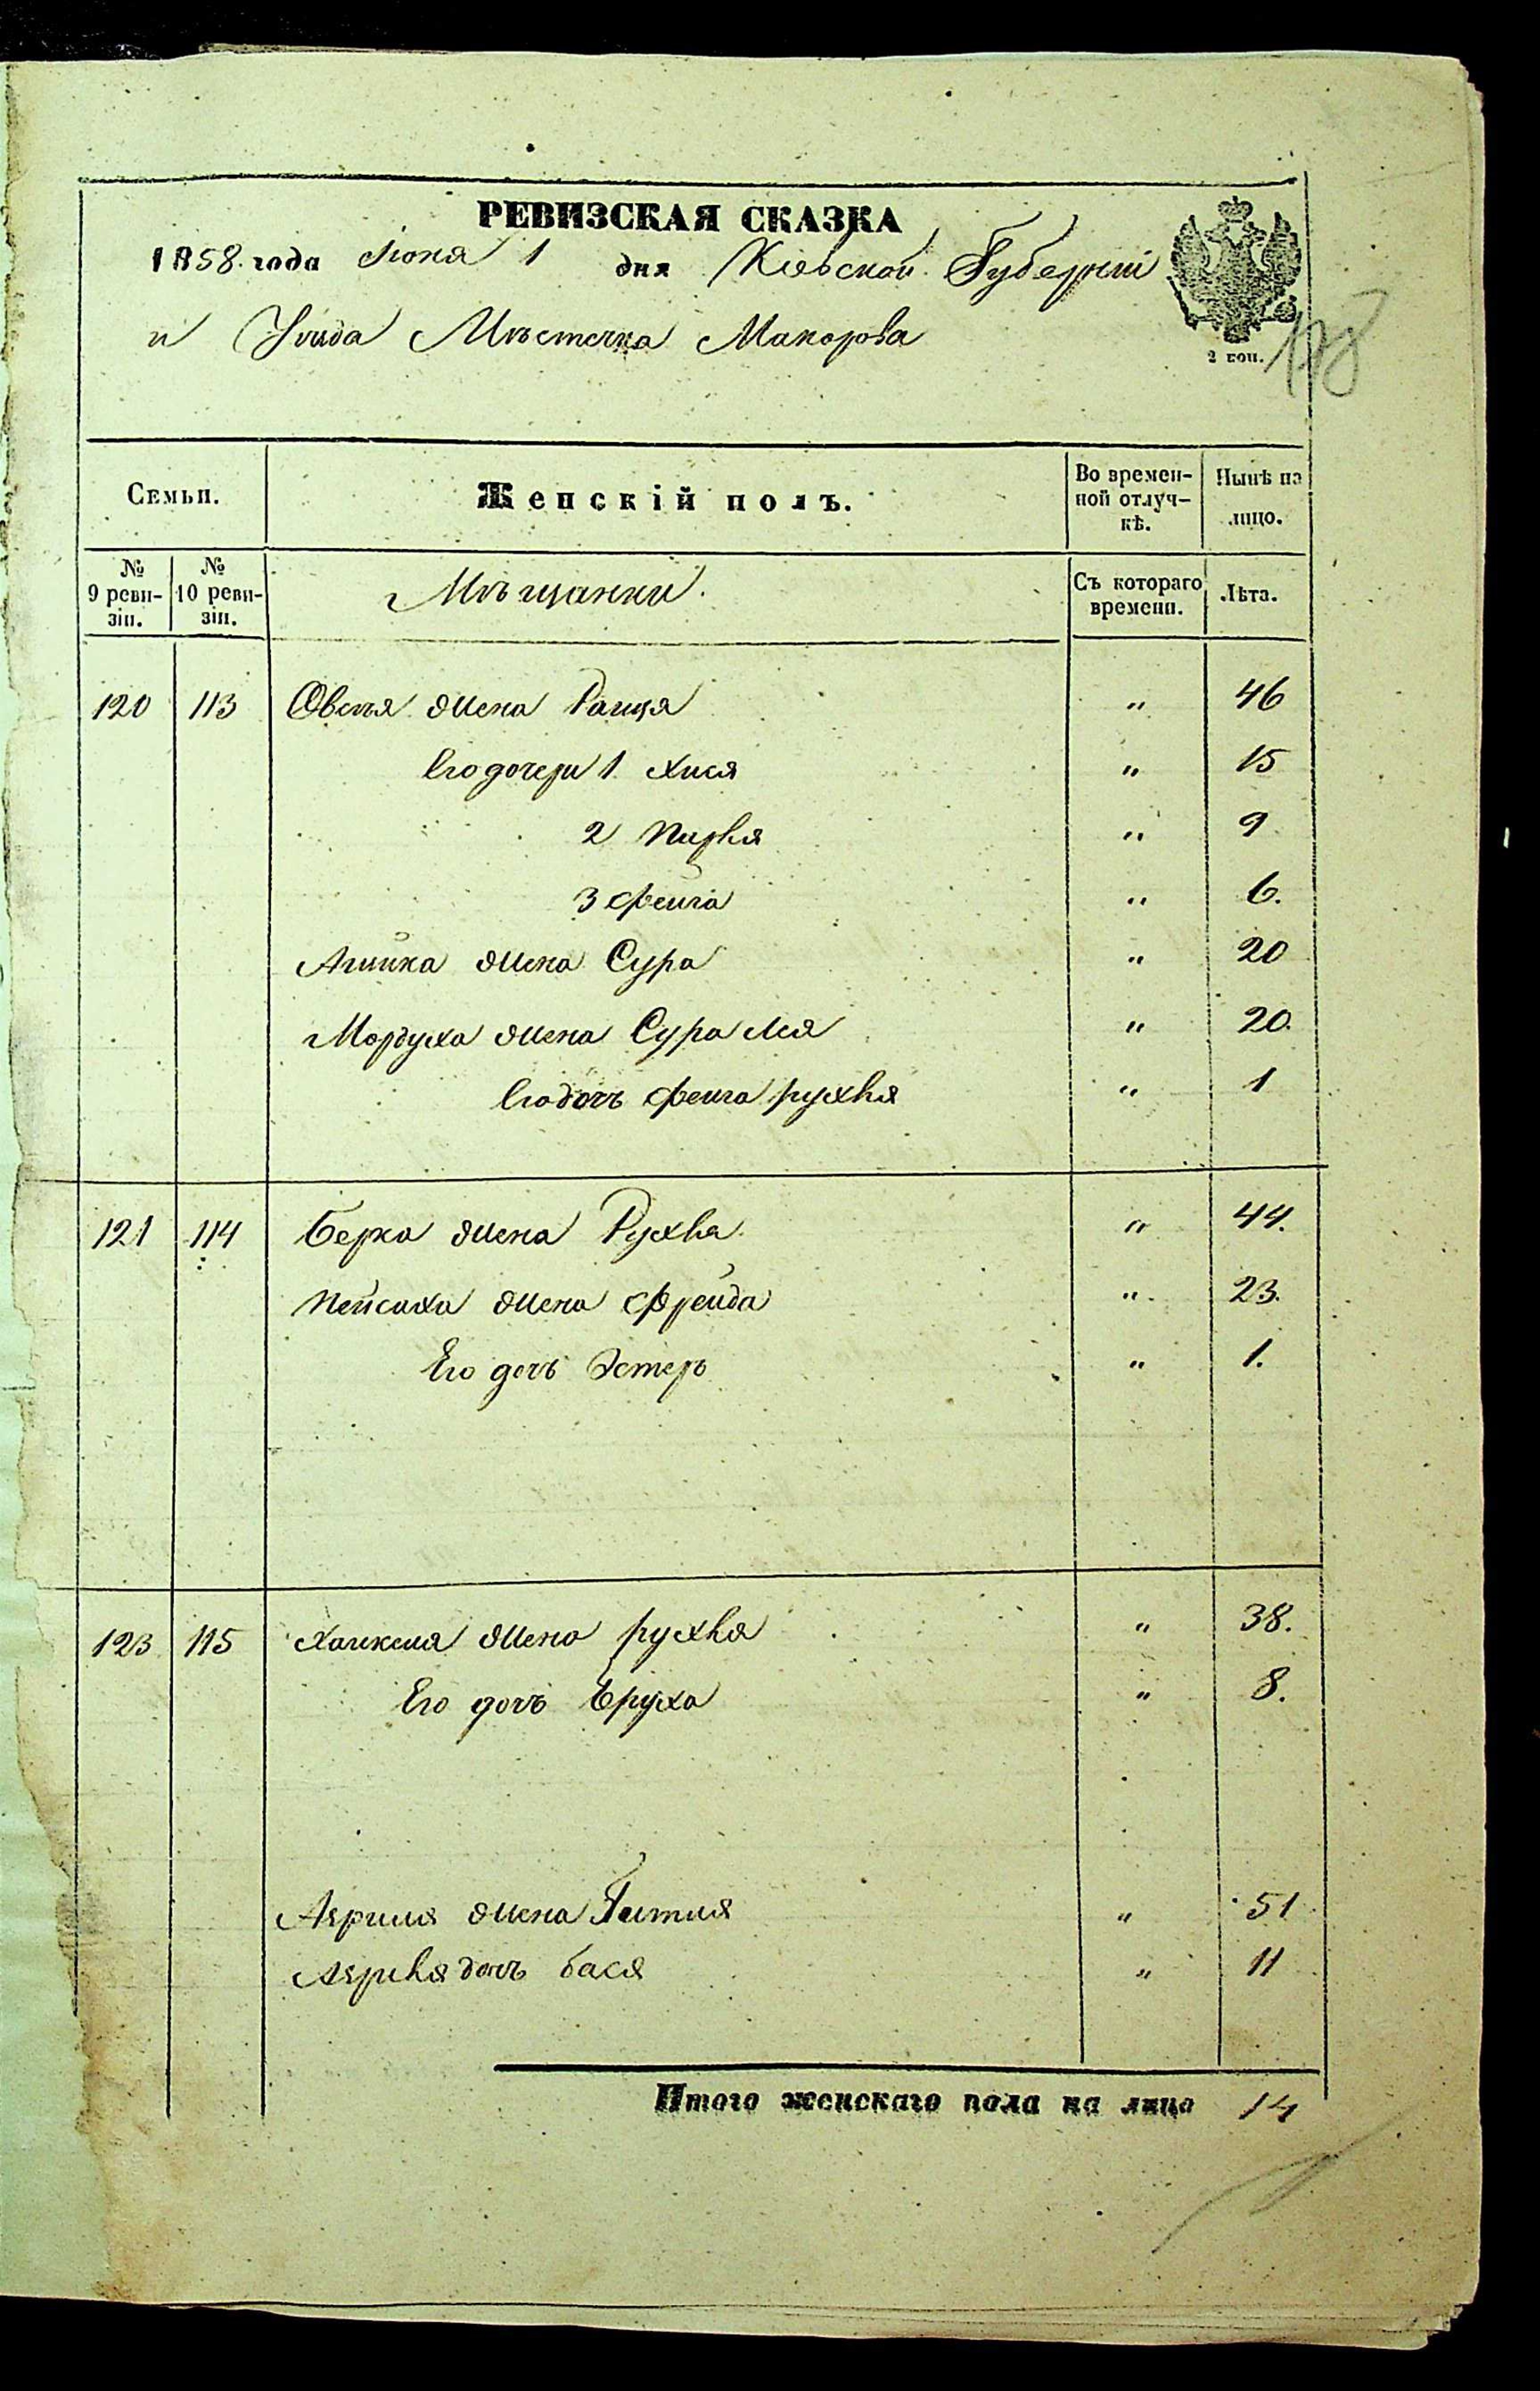 РЕВИЗСКАЯ СКАЗКА
1858 года Іюня 1 дня Кіевской Губерніи
и Уѣзда Мѣстечка Макарова
2 коп.
Семьи. Женскій полъ. Во временной отлучкѣ. Нынѣ на лицо.
№ 9 ревизіи. № 10 ревизіи. Мѣщанки. Съ котораго времени. Лѣта.
120 113 Овсея жена Раиця " 46
Его дочери 1 Хися " 15
2 Пирля " 9
3 Фейга " 6.
жена Сура " 20
Мордуха жена Сура Лея " 20.
Его дочь Фейга рухля " 1
121 114 Берка жена Рухля " 44.
Пейсаха жена Фрейда " 23.
Его дочь Эстеръ " 1.
123 115 жена рухля " 38.
Его дочь " 8.
жена Гитля " 51
дочь бася " 11
Итого женскаго пола на лицо 14